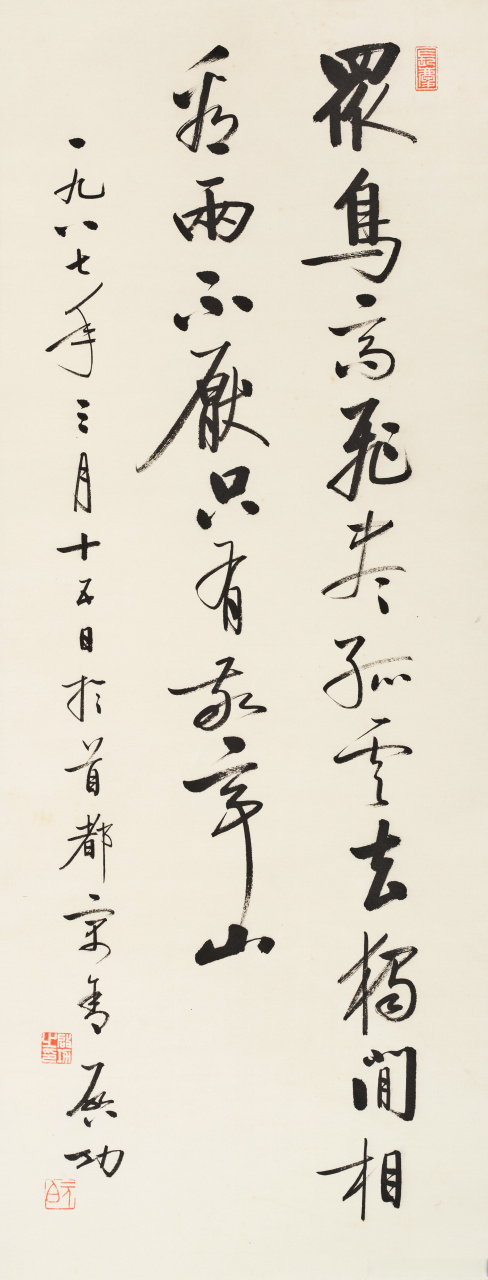 眾鳥高飛盡孤雲去獨閒相
看兩不厭只有敬亭山
一九八七年三月十五日於首都
啟功
啟功之印
元白